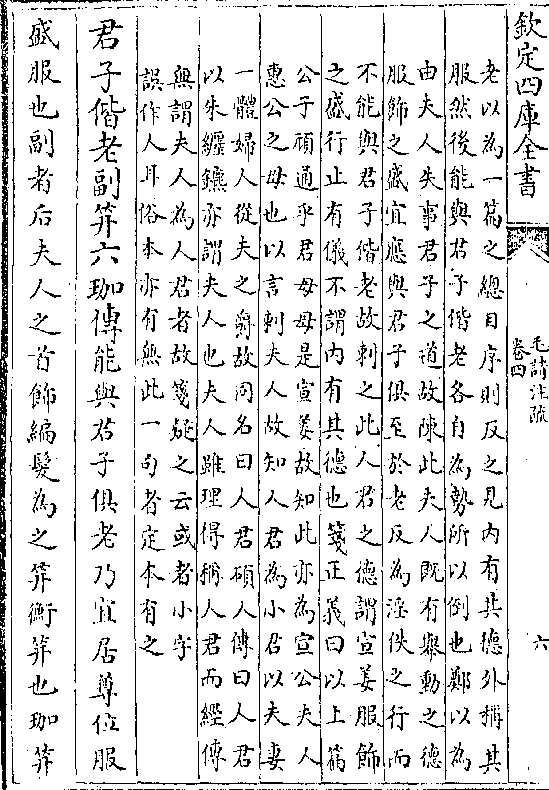 欽定四庫全書
毛詩注疏
卷四
六
老以為一篇之總目序則反之見内有其德外稱其
服然後能與君子偕老各自為勢所以倒也鄭以為
由夫人失事君子之道故陳此夫人既有舉動之德
服飾之盛宜應與君子俱至於老反為淫佚之行而
不能與君子偕老故刺之此人君之德謂宣姜服飾
之盛行止有儀不謂内有其德也箋正義曰以上篇
公子頑通乎君母母是宣姜故知此亦為宣公夫人
惠公之母也以言刺夫人故知人君為小君以夫妻
一體婦人從夫之爵故同名曰人君碩人傳曰人君
以朱纏鑣亦謂夫人也夫人雖理得稱人君而經傳
無謂夫人為人君者故箋疑之云或者小字
誤作人耳俗本亦有無此一句者定本有之
君子偕老副笄六珈傳能與君子俱老乃宜居尊位服
盛服也副者后夫人之首飾編髮為之笄衡笄也珈笄